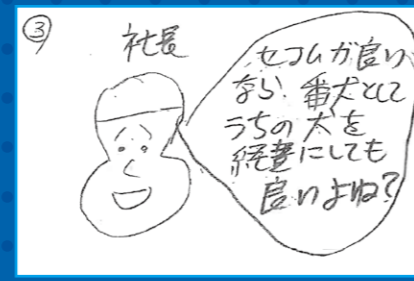 ③
社長
セコムが良い
なら、番犬として
うちの犬を
経費にしても
良いよね?